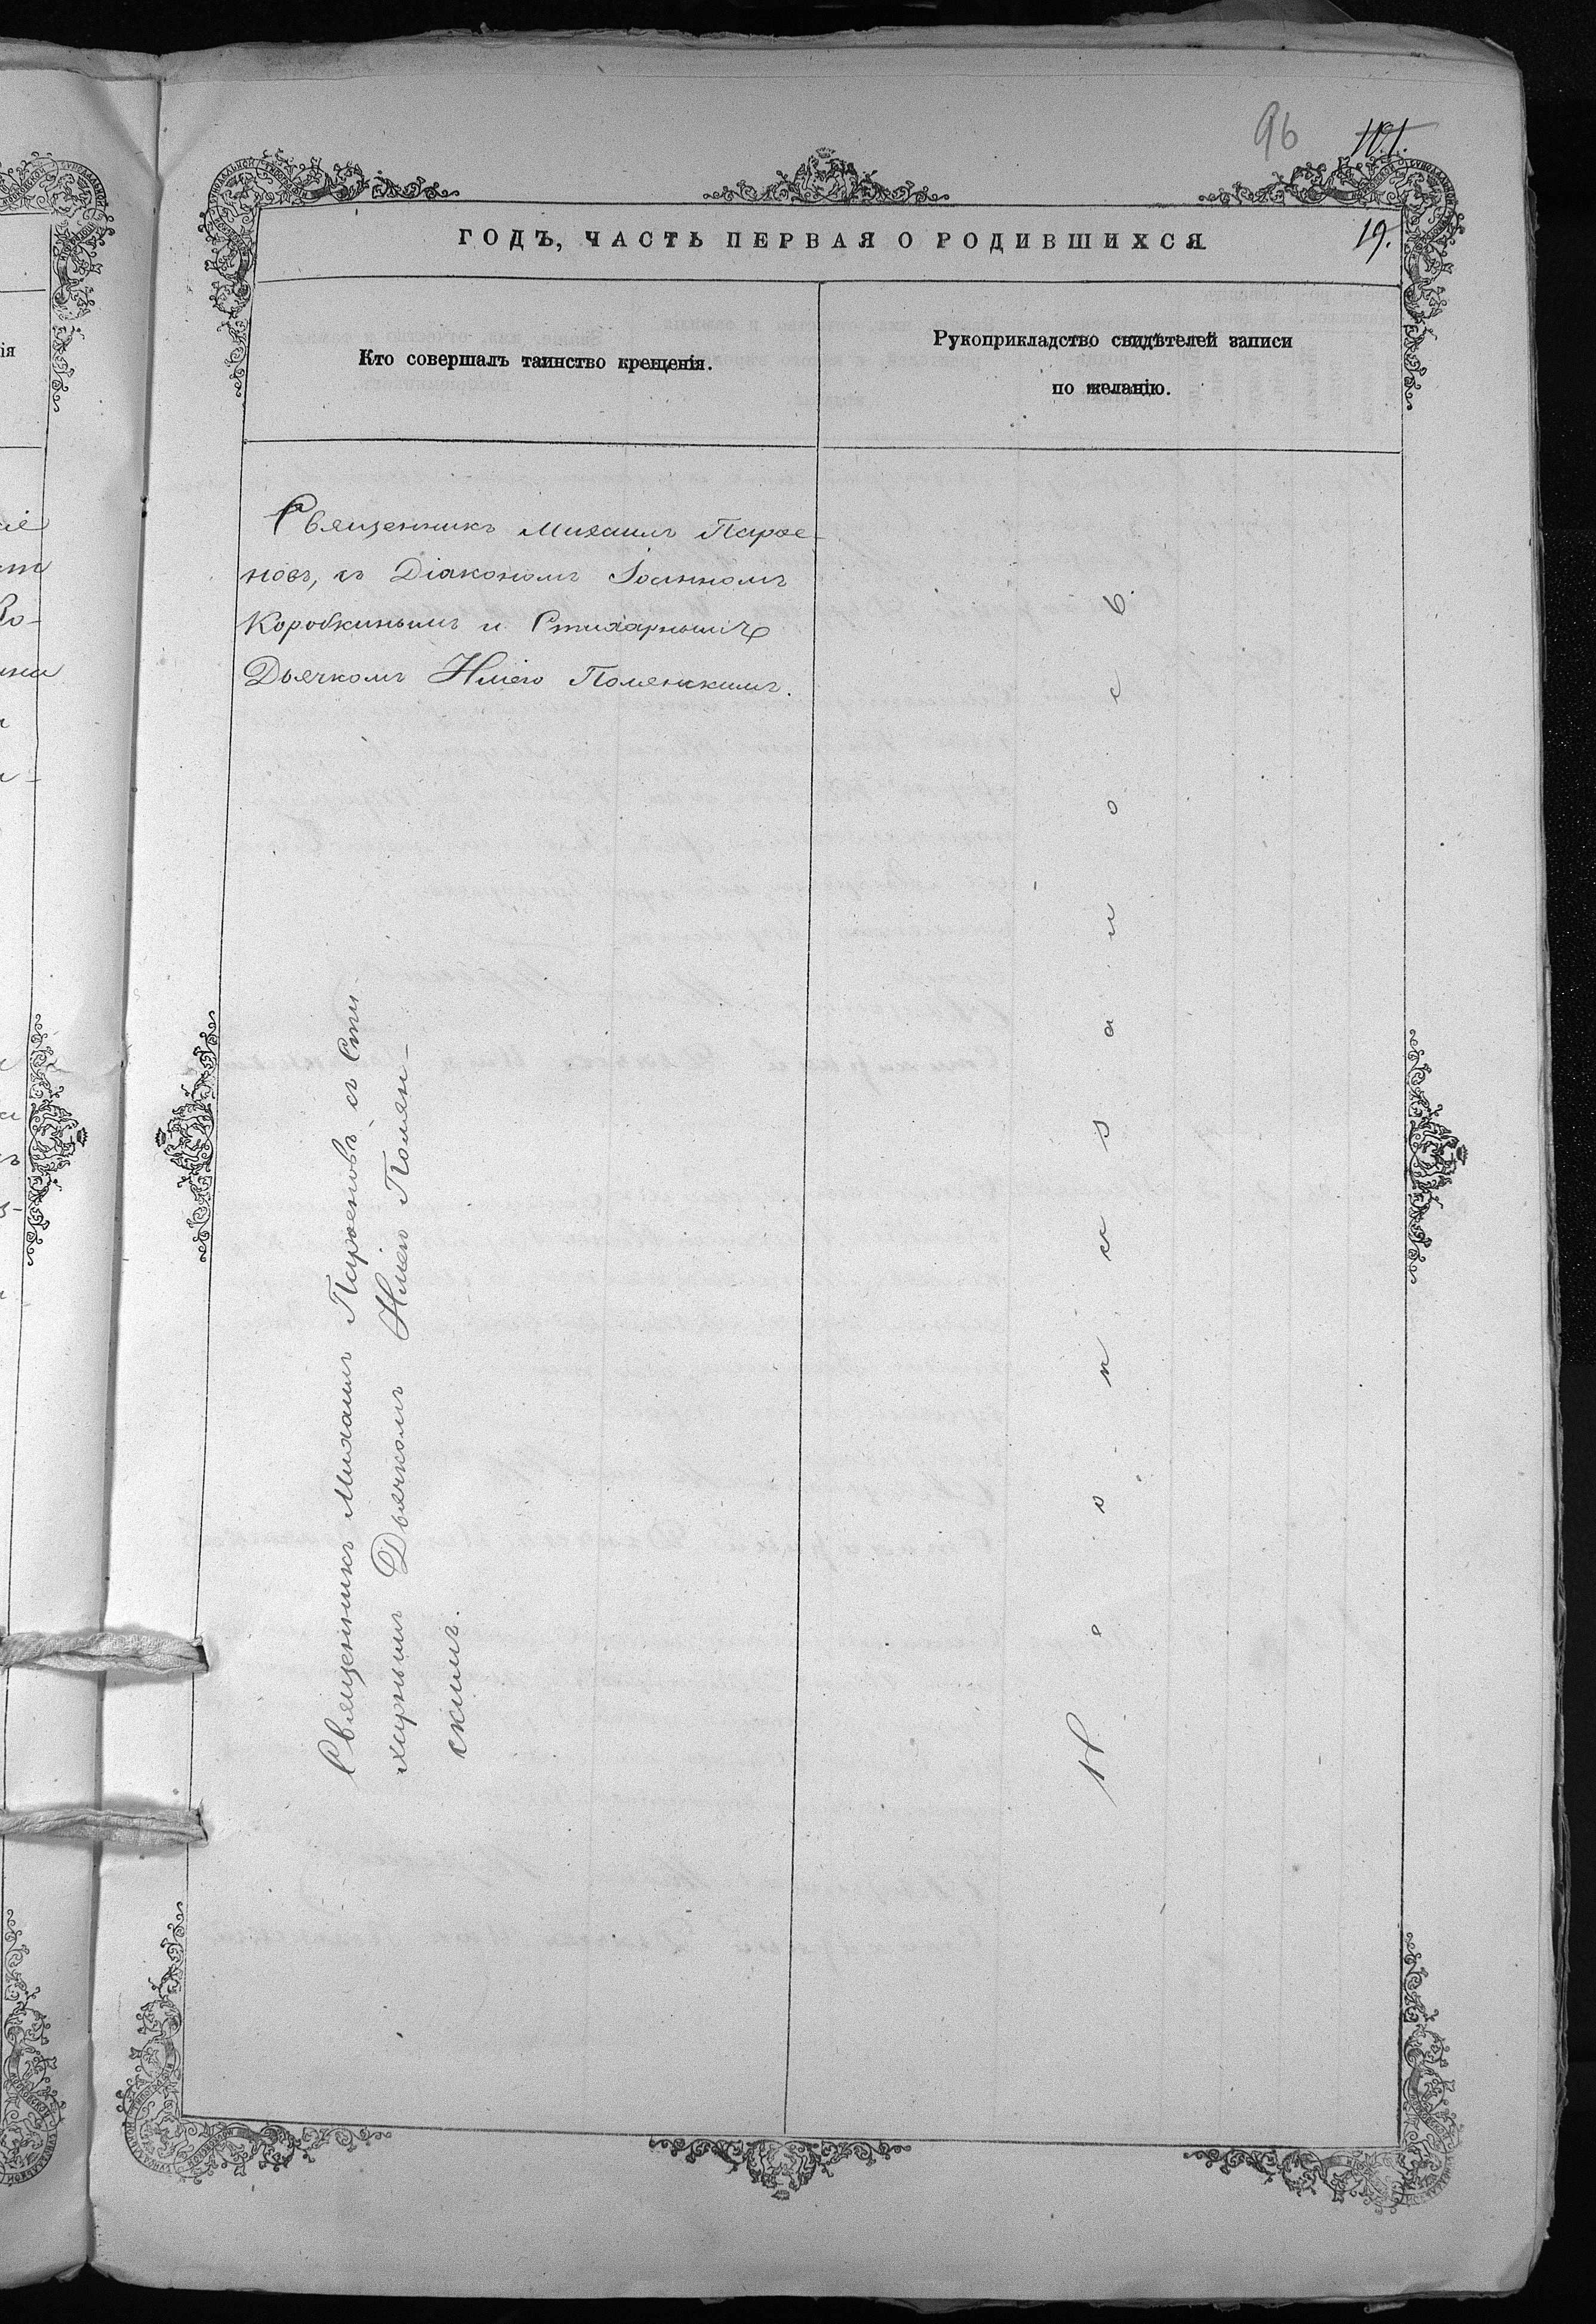 96
101.
19.
ГОДЪ, ЧАСТЬ ПЕРВАЯ О РОДИВШИХСЯ
Кто совершалъ таинство крещенія.
Рукоприкладство свидѣтелей записи
по желанію.
Священникъ Михаилъ Парѳе-
новъ, съ Діакономъ Іоанномъ
Коробкинымъ и Стихарнымъ
Дьячкомъ Иліею Полянскимъ.
Священникъ Михаилъ Парѳеновъ съ Сти-
харнымъ Дьячкомъ Иліею Полян-
скимъ.